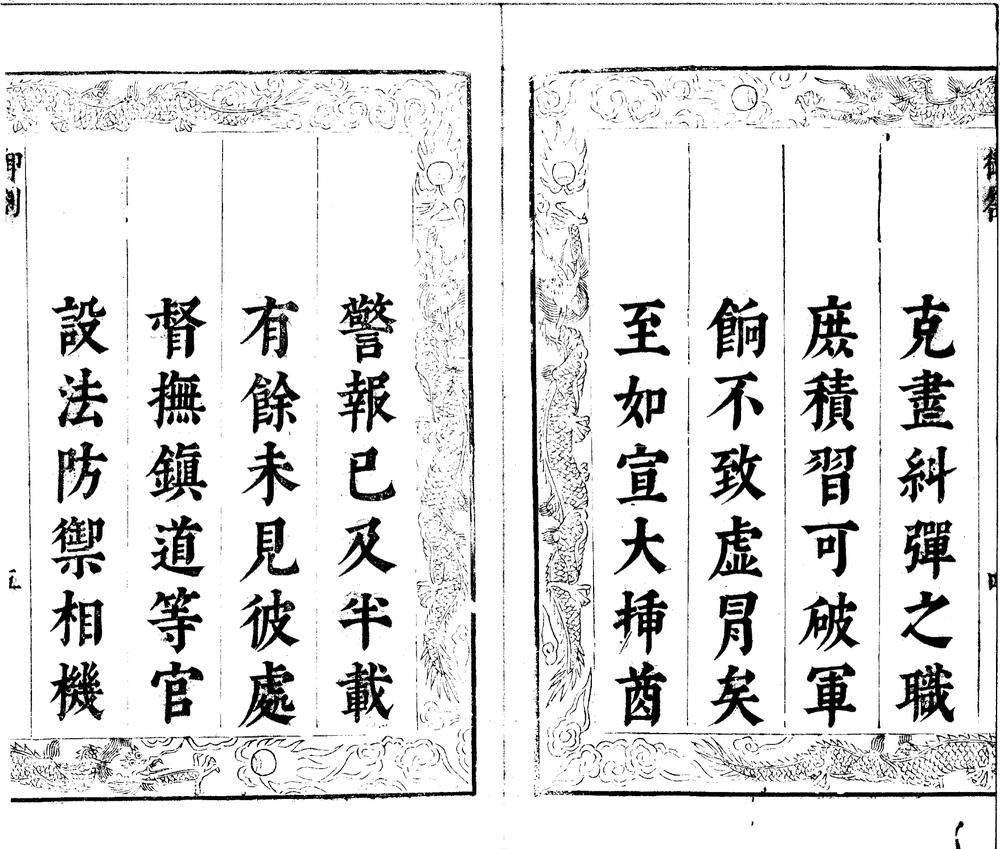 克盡糾彈之職
庶積習可破軍
餉不致虛冐矣
至如宣大揷酋
警報已及半載
有餘未見彼處
督撫鎮道等官
設法防禦相機